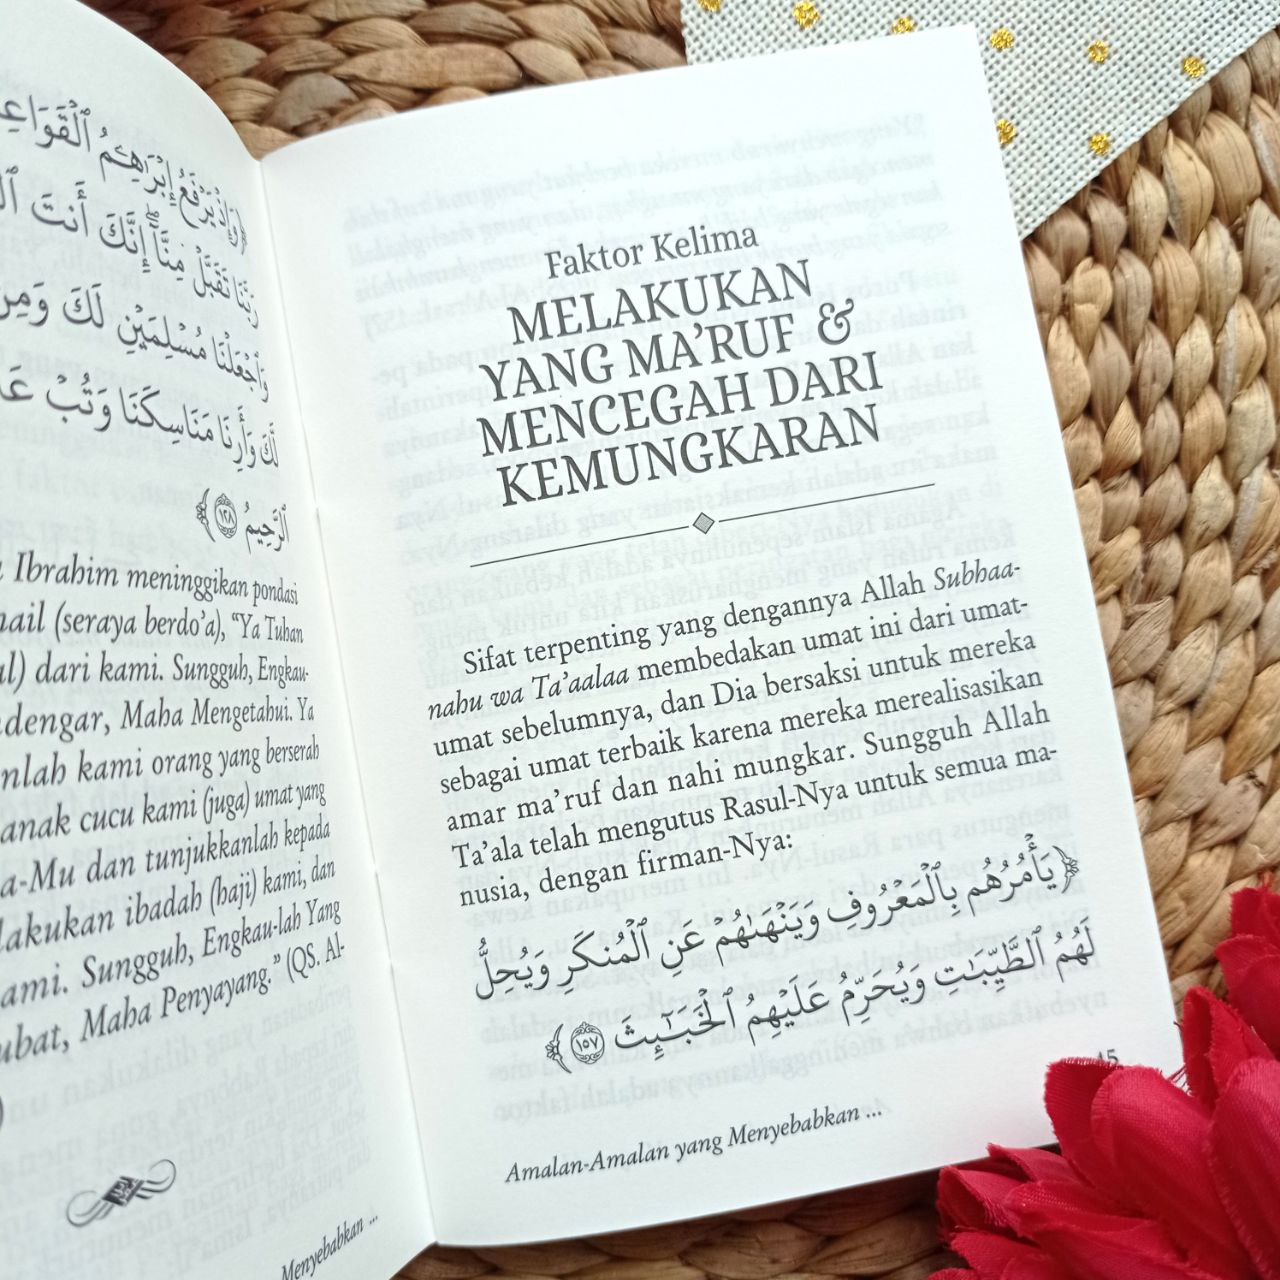 ﴿وَإِذْ يَرْفَعُ إِبْرَٰهِـۧمُ ٱلْقَوَاعِ
رَبَّنَا تَقَبَّلْ مِنَّآ ۖ إِنَّكَ أَنتَ
وَٱجْعَلْنَا مُسْلِمَيْنِ لَكَ وَمِن
لَّكَ وَأَرِنَا مَنَاسِكَنَا وَتُبْ
ٱلرَّحِيمُ ﴿١٢٨﴾
Ibrahim meninggikan pondasi
nail (seraya berdo'a), "Ya Tuhan
al) dari kami. Sungguh, Engkau-
ndengar, Maha Mengetahui. Ya
nlah kami orang yang berserah
anak cucu kami (juga) umat yang
a-Mu dan tunjukkanlah kepada
lakukan ibadah (haji) kami, dan
ami. Sungguh, Engkau-lah Yang
ubat, Maha Penyayang." (QS. Al-
Menyebabkan ...
Faktor Kelima
MELAKUKAN
YANG MA'RUF &
MENCEGAH DARI
KEMUNGKARAN
Sifat terpenting yang dengannya Allah Subhaa-
nahu wa Ta'aalaa membedakan umat ini dari umat-
umat sebelumnya, dan Dia bersaksi untuk mereka
sebagai umat terbaik karena mereka merealisasikan
amar ma'ruf dan nahi mungkar. Sungguh Allah
Ta'ala telah mengutus Rasul-Nya untuk semua ma-
nusia, dengan firman-Nya:
﴿يَأْمُرُهُم بِٱلْمَعْرُوفِ وَيَنْهَىٰهُمْ عَنِ ٱلْمُنكَرِ وَيُحِلُّ
لَهُمُ ٱلطَّيِّبَٰتِ وَيُحَرِّمُ عَلَيْهِمُ ٱلْخَبَٰٓئِثَ ﴿١٥٧﴾
Amalan-Amalan yang Menyebabkan ...